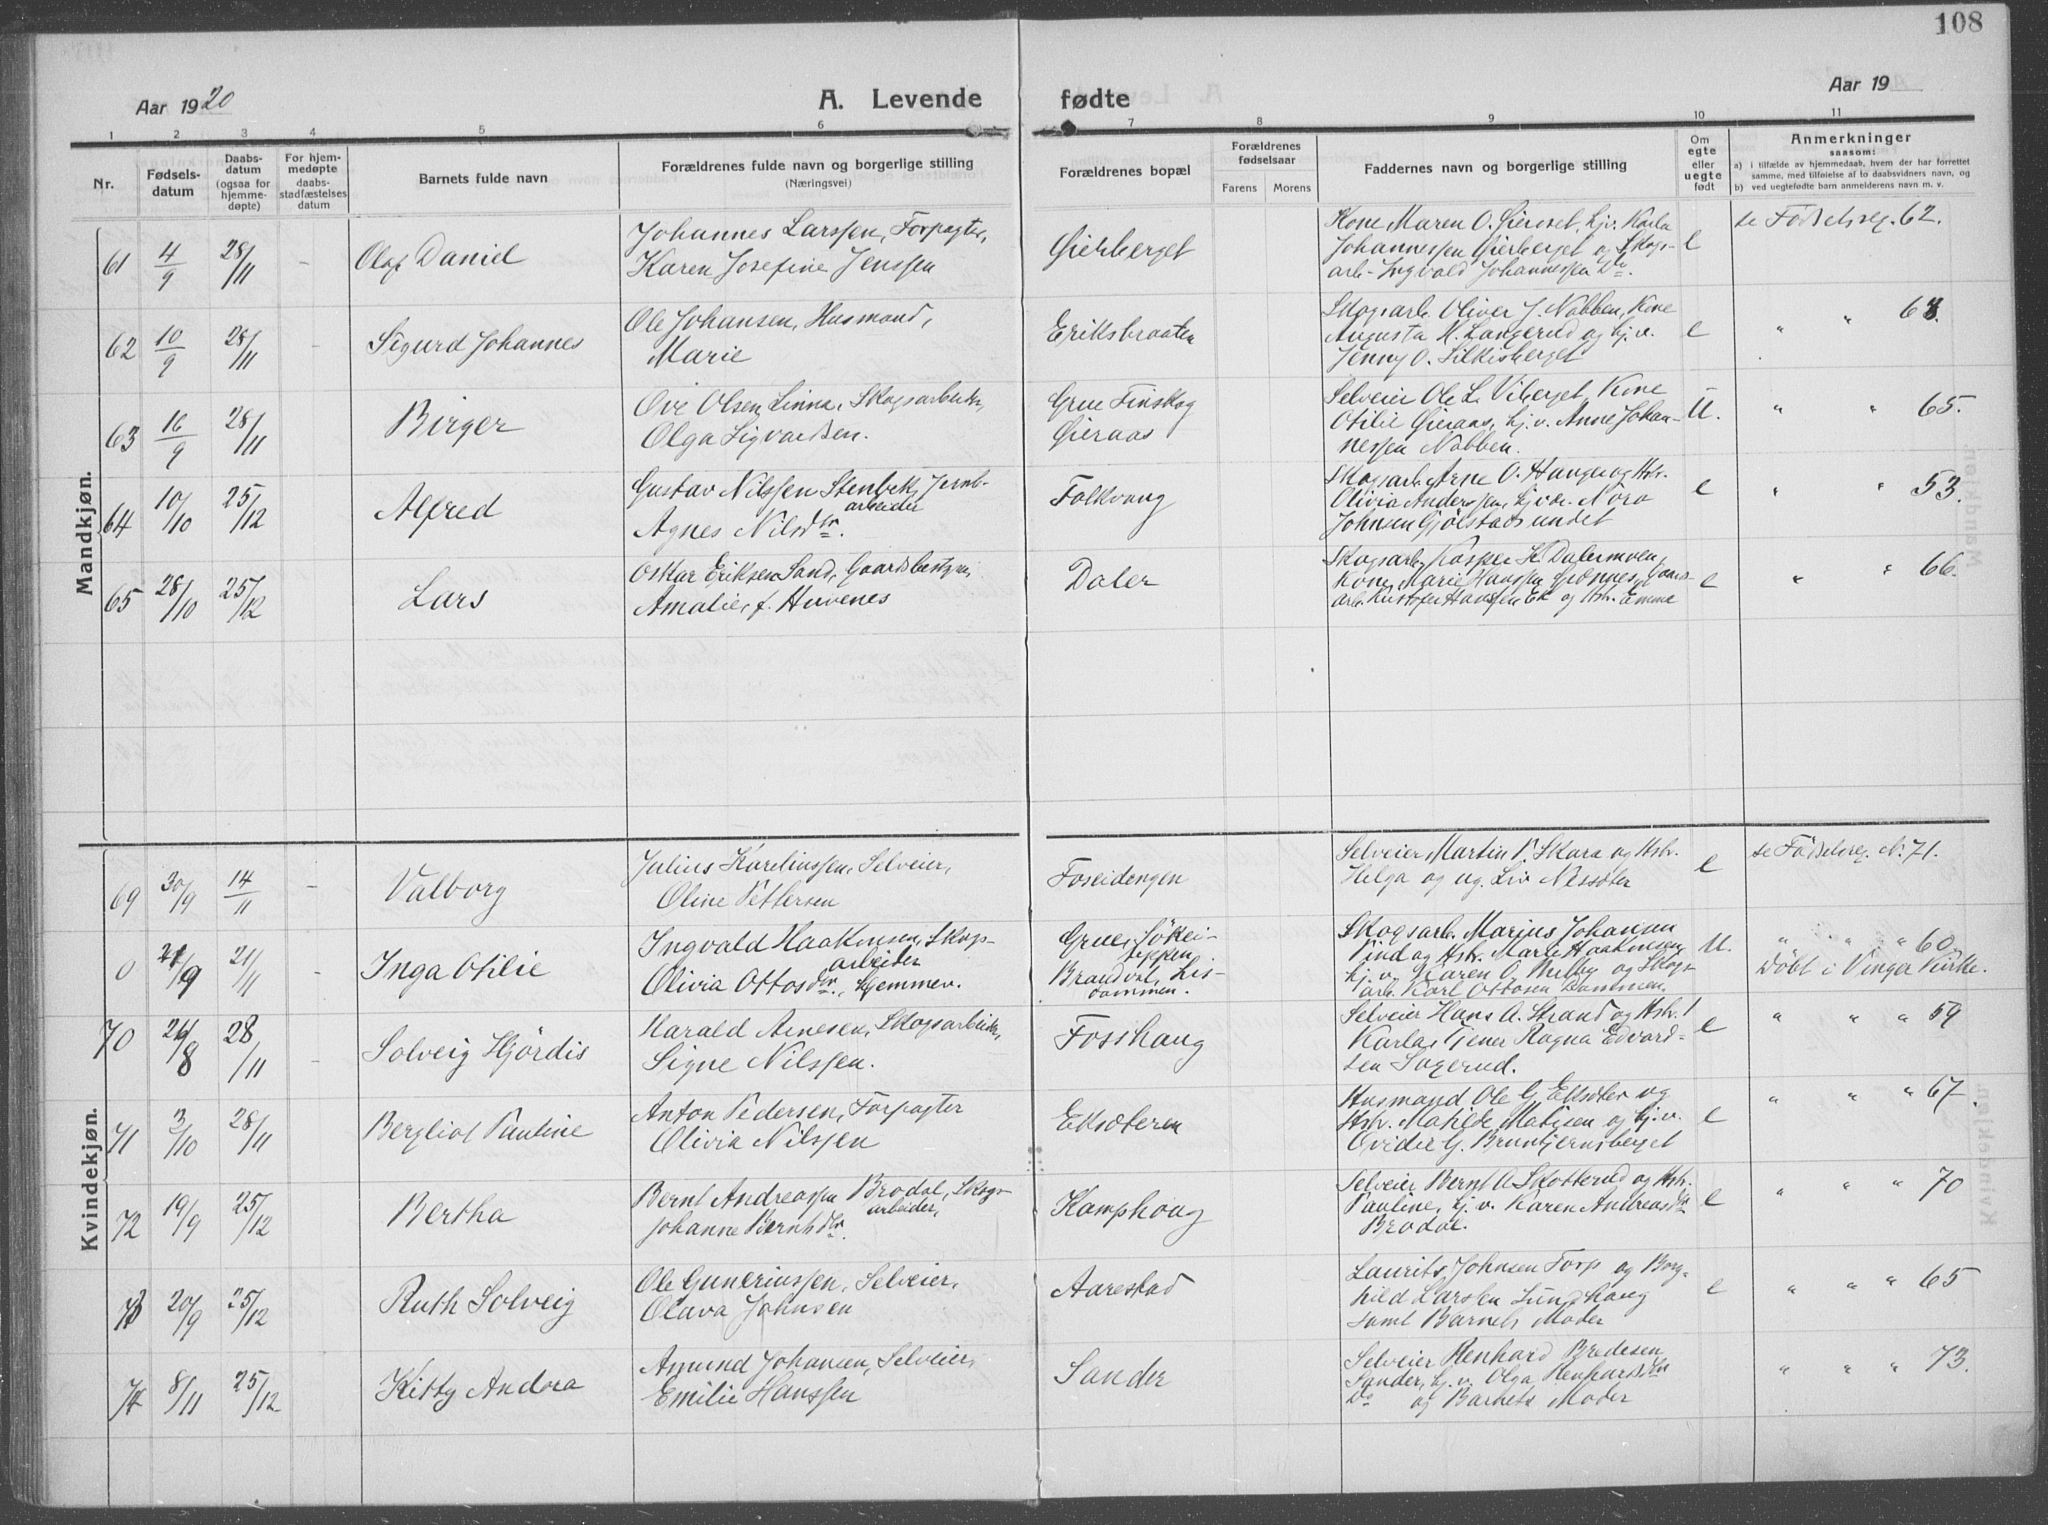 108
Aar 1920
A. Levende fødte
Aar 19
1 2 3 4 5 6 7 8 9 10 11
Nr.
Fødsels-
datum
Daabs-
datum
(ogsaa for
hjemme-
døpte)
For hjem-
medøpte
daabs-
stadfæstelses
datum
Barnets fulde navn
Forældrenes fulde navn og borgerlige stilling
(Næringsvei)
Forældrenes bopæl
Forældrenes
fødselsaar
Farens Morens
Faddernes navn og borgerlige stilling
Om
egte
eller
uegte
født
Anmerkninger
saasom:
a) i tilfælde av hjemmedaab, hvem der har forrettet
samme, med tilføielse af to daabsvidners navn, og
b) ved uegtefødte barn anmelderens navn m. v.
Mandkjøn.
61 4/9 28/11 - Olaf Daniel
Johannes Larssen, Forpagter,
Karen Josefine Jenssen
Gierberget
Kone Maren O. Gieroset, hj.v. Karla
Johannessen Gierberget og Skogs-
arb. Ingvald Johannessen Do.
e
se Fødselsreg. 62.
62 10/9 28/11 - Sigurd Johannes
Ole Johansen, Husmand,
Marie
Eriksbraaten
Skogsarb. Oliver J. Nabben, Kone
Augusta M. Langerud og hj.v.
Jenny O. Silkisberget
e
" " 63.
63 16/9 28/11 Birger
Ove Olsen Linna, Skogsarbeider,
Olga Sigvardsen.
Grue Finskog
Gieraas
Selveier Ole L. Viberget, Kone
Otilie Gieraas, hj.v. Anne Johan-
nessen Nabben.
U.
" " 65.
64 10/10 25/12 Alfred
Gustav Nilssen Stenbek, Jernb-
arbeider
Agnes Nilsdtr.
Folkvang
Skogsarb. Arne O. Hauger og Hstr.
Olivia Anderssen, hj.vær. Nora
Johnsen Gjølstadsundet
e
" " 53.
65 28/10 25/12 Lars
Oskar Eriksen Sand, Gaardsbestyrer,
Amalie, f. Huvenes
Daler
Skogsarb. Kasper H. Dalermoen,
Kone Marie Hanssen Grønnes, Gaards-
arb. Kristofer Hanssen Ek og Hstr. Emma
e
" " 66.
Kvindekjøn.
69 30/9 14/11 - Valborg
Julius Karelinssen, Selveier,
Oline Pettersen
Foseidengen
Selveier Martin P. Skara og Hstr.
Helga og ug. Liv Nessæter
e
se Fødselsreg. N. 71.
0 21/9 21/11 Inga Otilie
Ingvald Haakensen, Skogs-
arbeider
Olivia Ottosdtr., hjemmev.
Grue,
Brandval, Lis-
dammen.
Skogsarb. Marius Johansen
Vind og Hstr. Marte Haakensen,
hj.v. Karen O. Melby og Skogs-
arb. Karl Ottosen Dammen.
U.
" " " 60
Døbt i Vinger Kirke.
70 26/8 28/11 Solveig Hjørdis
Harald Arnesen, Skogsarbeider,
Signe Nilssen.
Fosshaug
Selveier Hans A. Strand og Hstr.
Karla, Tjener Ragna Edvard-
sen Sagerud.
e
" " " 59
71 3/10 28/11 Bergliot Pauline
Anton Pedersen, Forpagter
Olivia Nilssen
Eksæteren
Husmand Ole G. Eksæter og
Hstr. Matilde Matisen og hj.v.
Ovidie G. Bruntjernsberget
e
" " " 67.
72 19/9 25/12 Bertha
Bernt Andreassen Brodal, Skogs-
arbeider,
Johanne Berntsdtr.
Kamphaug
Selveier Bernt A. Skotterud og Hstr.
Pauline, hj.v. Karen Andreasdtr.
Brodal.
e
" " " 70
73 20/9 25/12 Ruth Solveig
Ole Gunerinssen, Selveier,
Olava Johnsen
Aarestad
Laurits Johnsen Torp og Borg-
hild Larsen Lundhaug
samt Barnets Moder
e
" " " 65
74 8/11 25/12 Kitty Andora
Amund Johansen, Selveier,
Emilie Hanssen
Sander
Selveier Renhard Bredesen
Sander, hj.v. Olga Renhardsdtr.
Do og Barnets Moder
" " " 73.